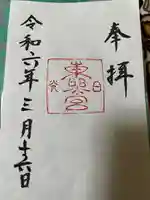 奉拝
東照宮
令和六年三月十六日